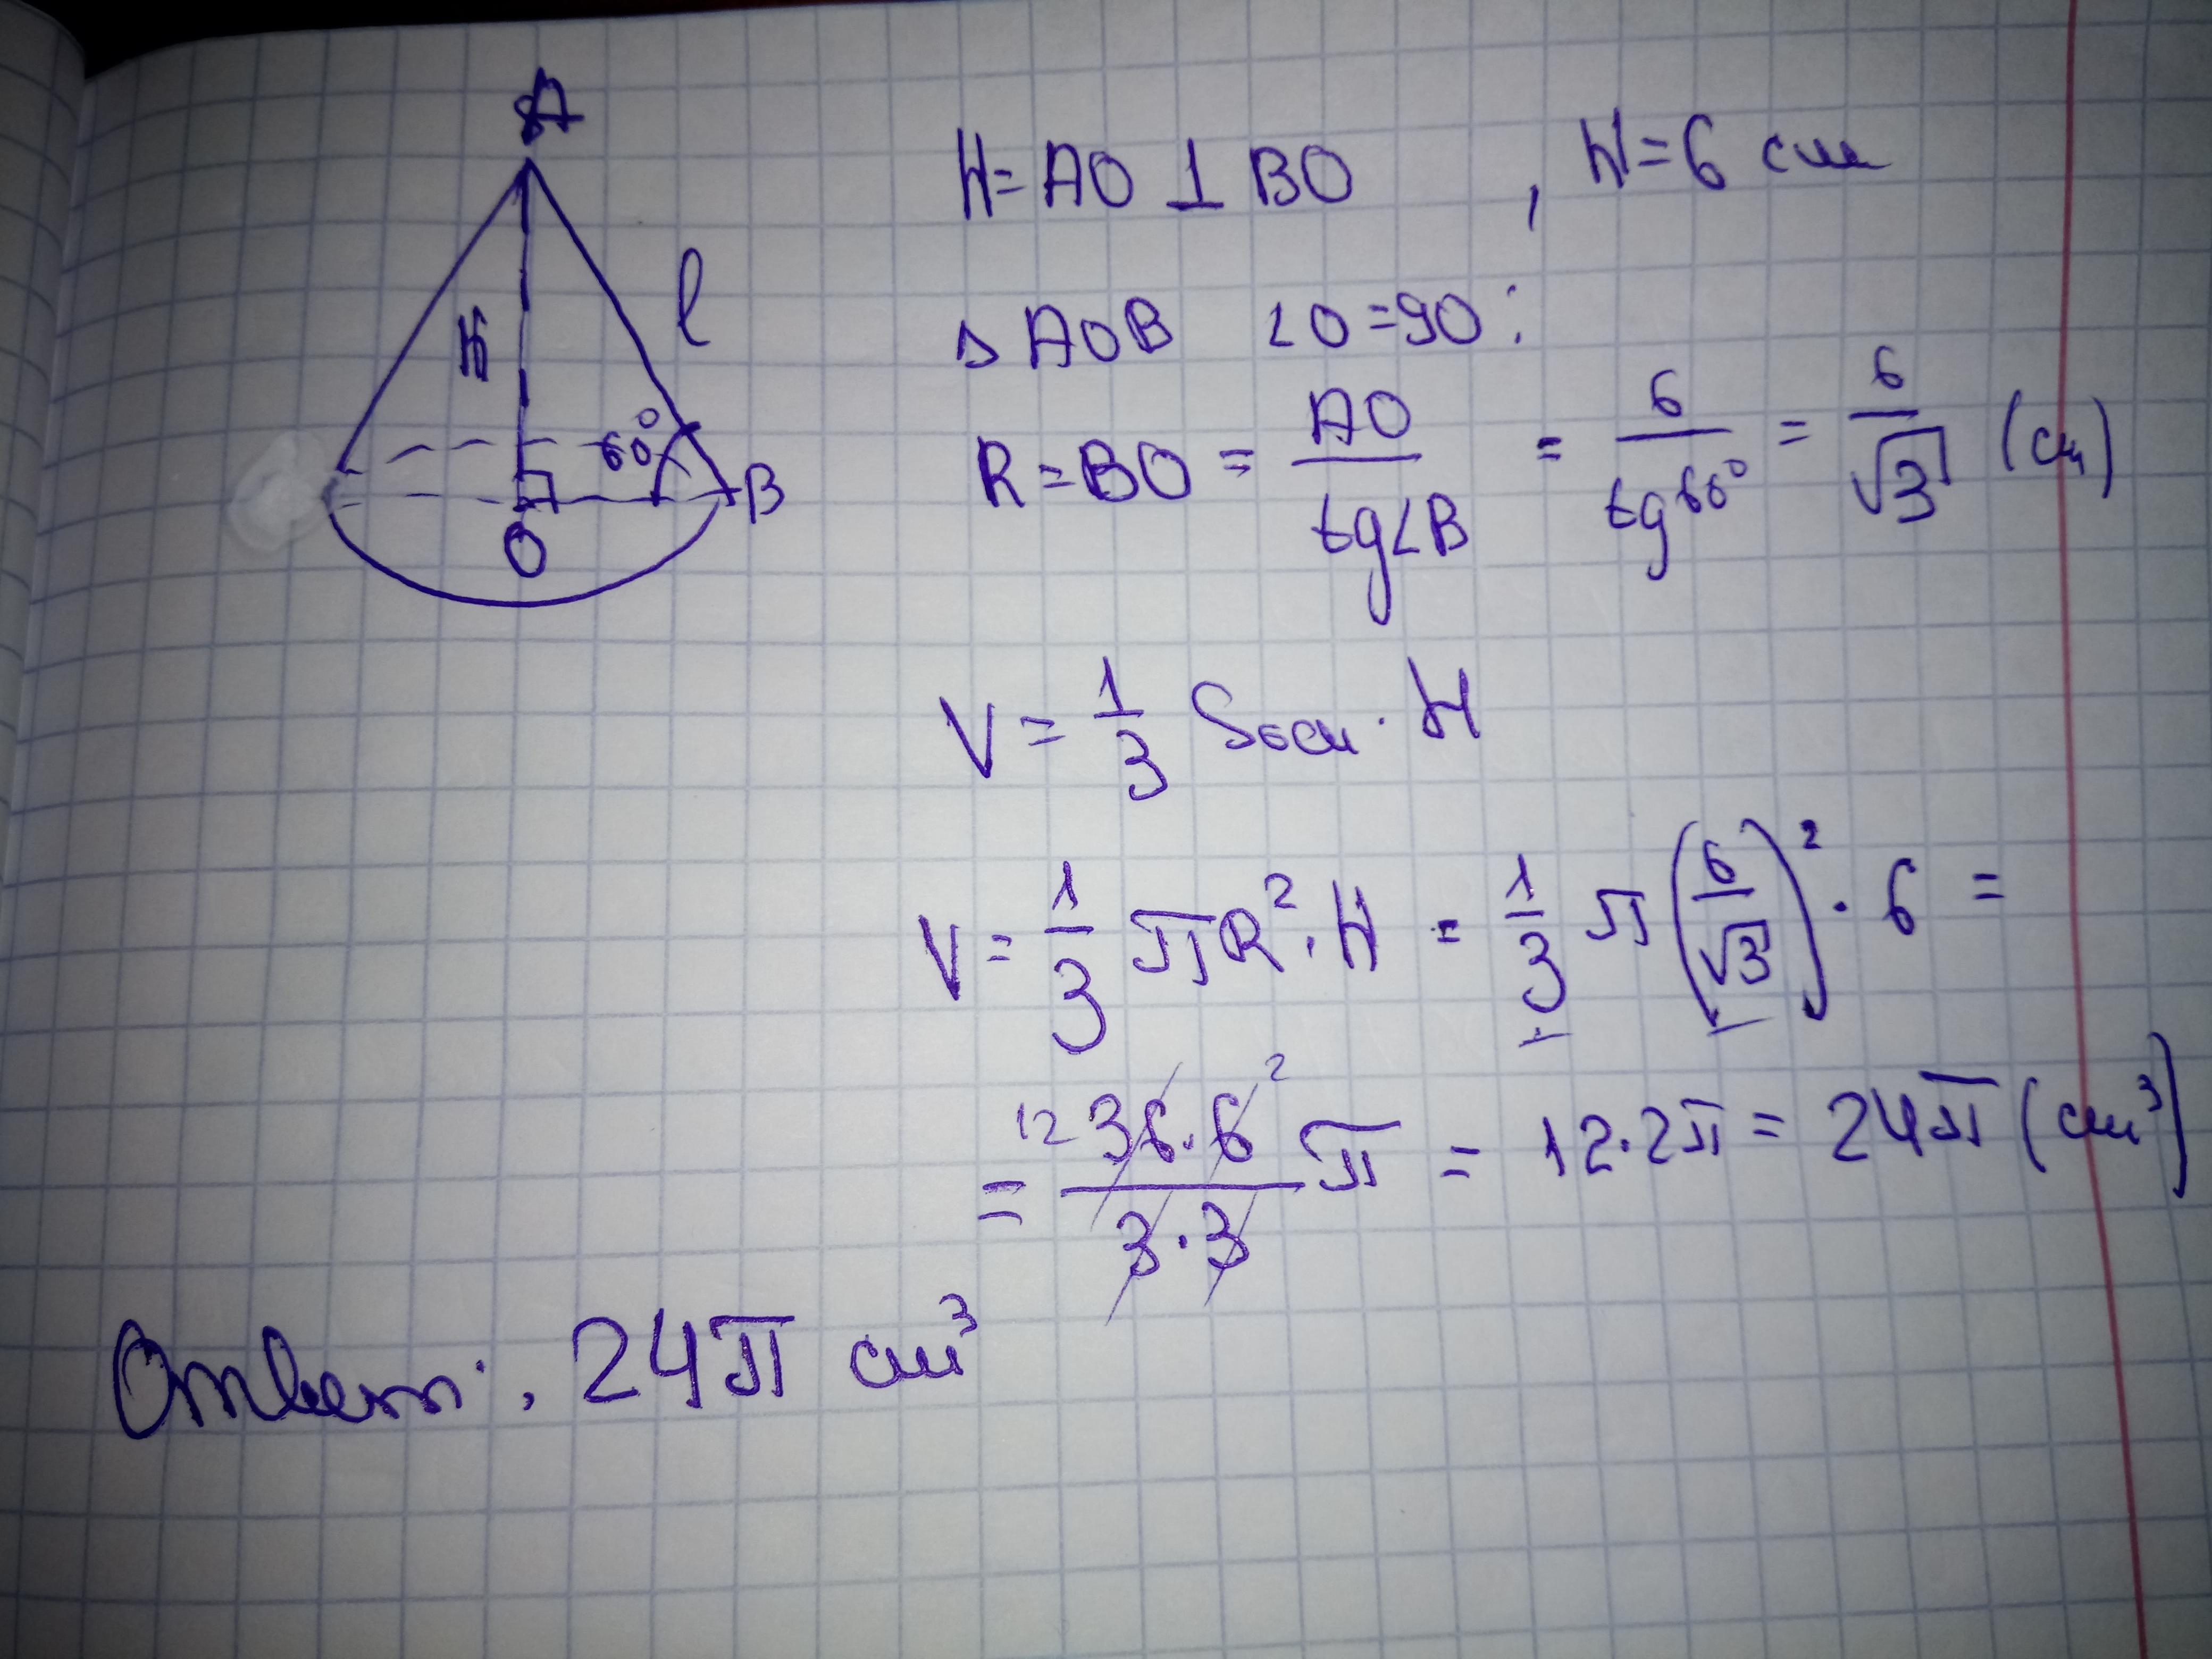 A
H
l
60°
B
O
H = AO ⊥ BO , H = 6 см
△ AOB ∠O = 90°:
R = BO = AO/tg∠B = 6/tg60° = 6/√3 (см)
V = 1/3 Sосн · H
V = 1/3 πR² · H = 1/3 π(6/√3)² · 6 =
= 12 36·6 2/3·3 π = 12·2π = 24π (см³)
Ответ: 24π см³